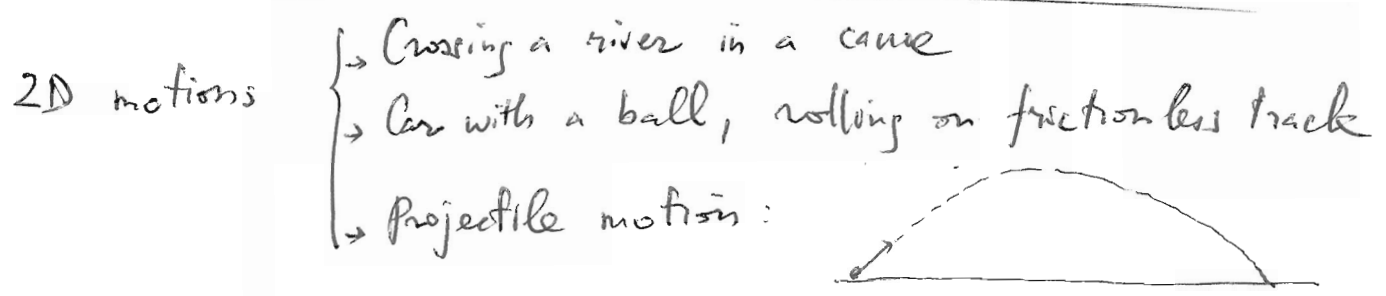 2D motions
→ Crossing a river in a canoe
→ Car with a ball, rolling on frictionless track
→ Projectile motion: